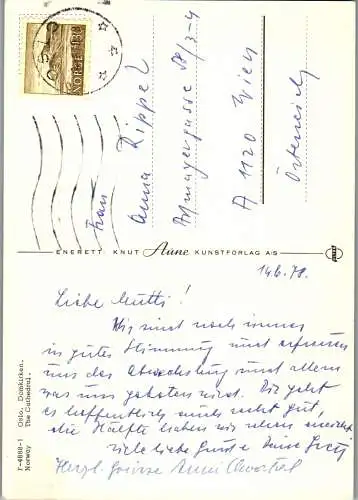 OSLO
NORGE 130
Frau
Anna Rippel
Aßmayergasse 58/3-4
A 1120 Wien
Österreich
ENERETT: KNUT Aune KUNSTFORLAG A/S
F-4888-1 Oslo. Domkirken.
The Cathedral.
Norway
14.6.78.
Liebe Mutti!
Wir sind noch immer
in guter Stimmung und erfreuen
uns der Abwechslung und allem
was uns geboten wird. Dir geht
es hoffentlich auch recht gut,
die Hälfte haben wir schon erreicht
viele liebe Grüße Deine
Herzl. Grüsse Anni